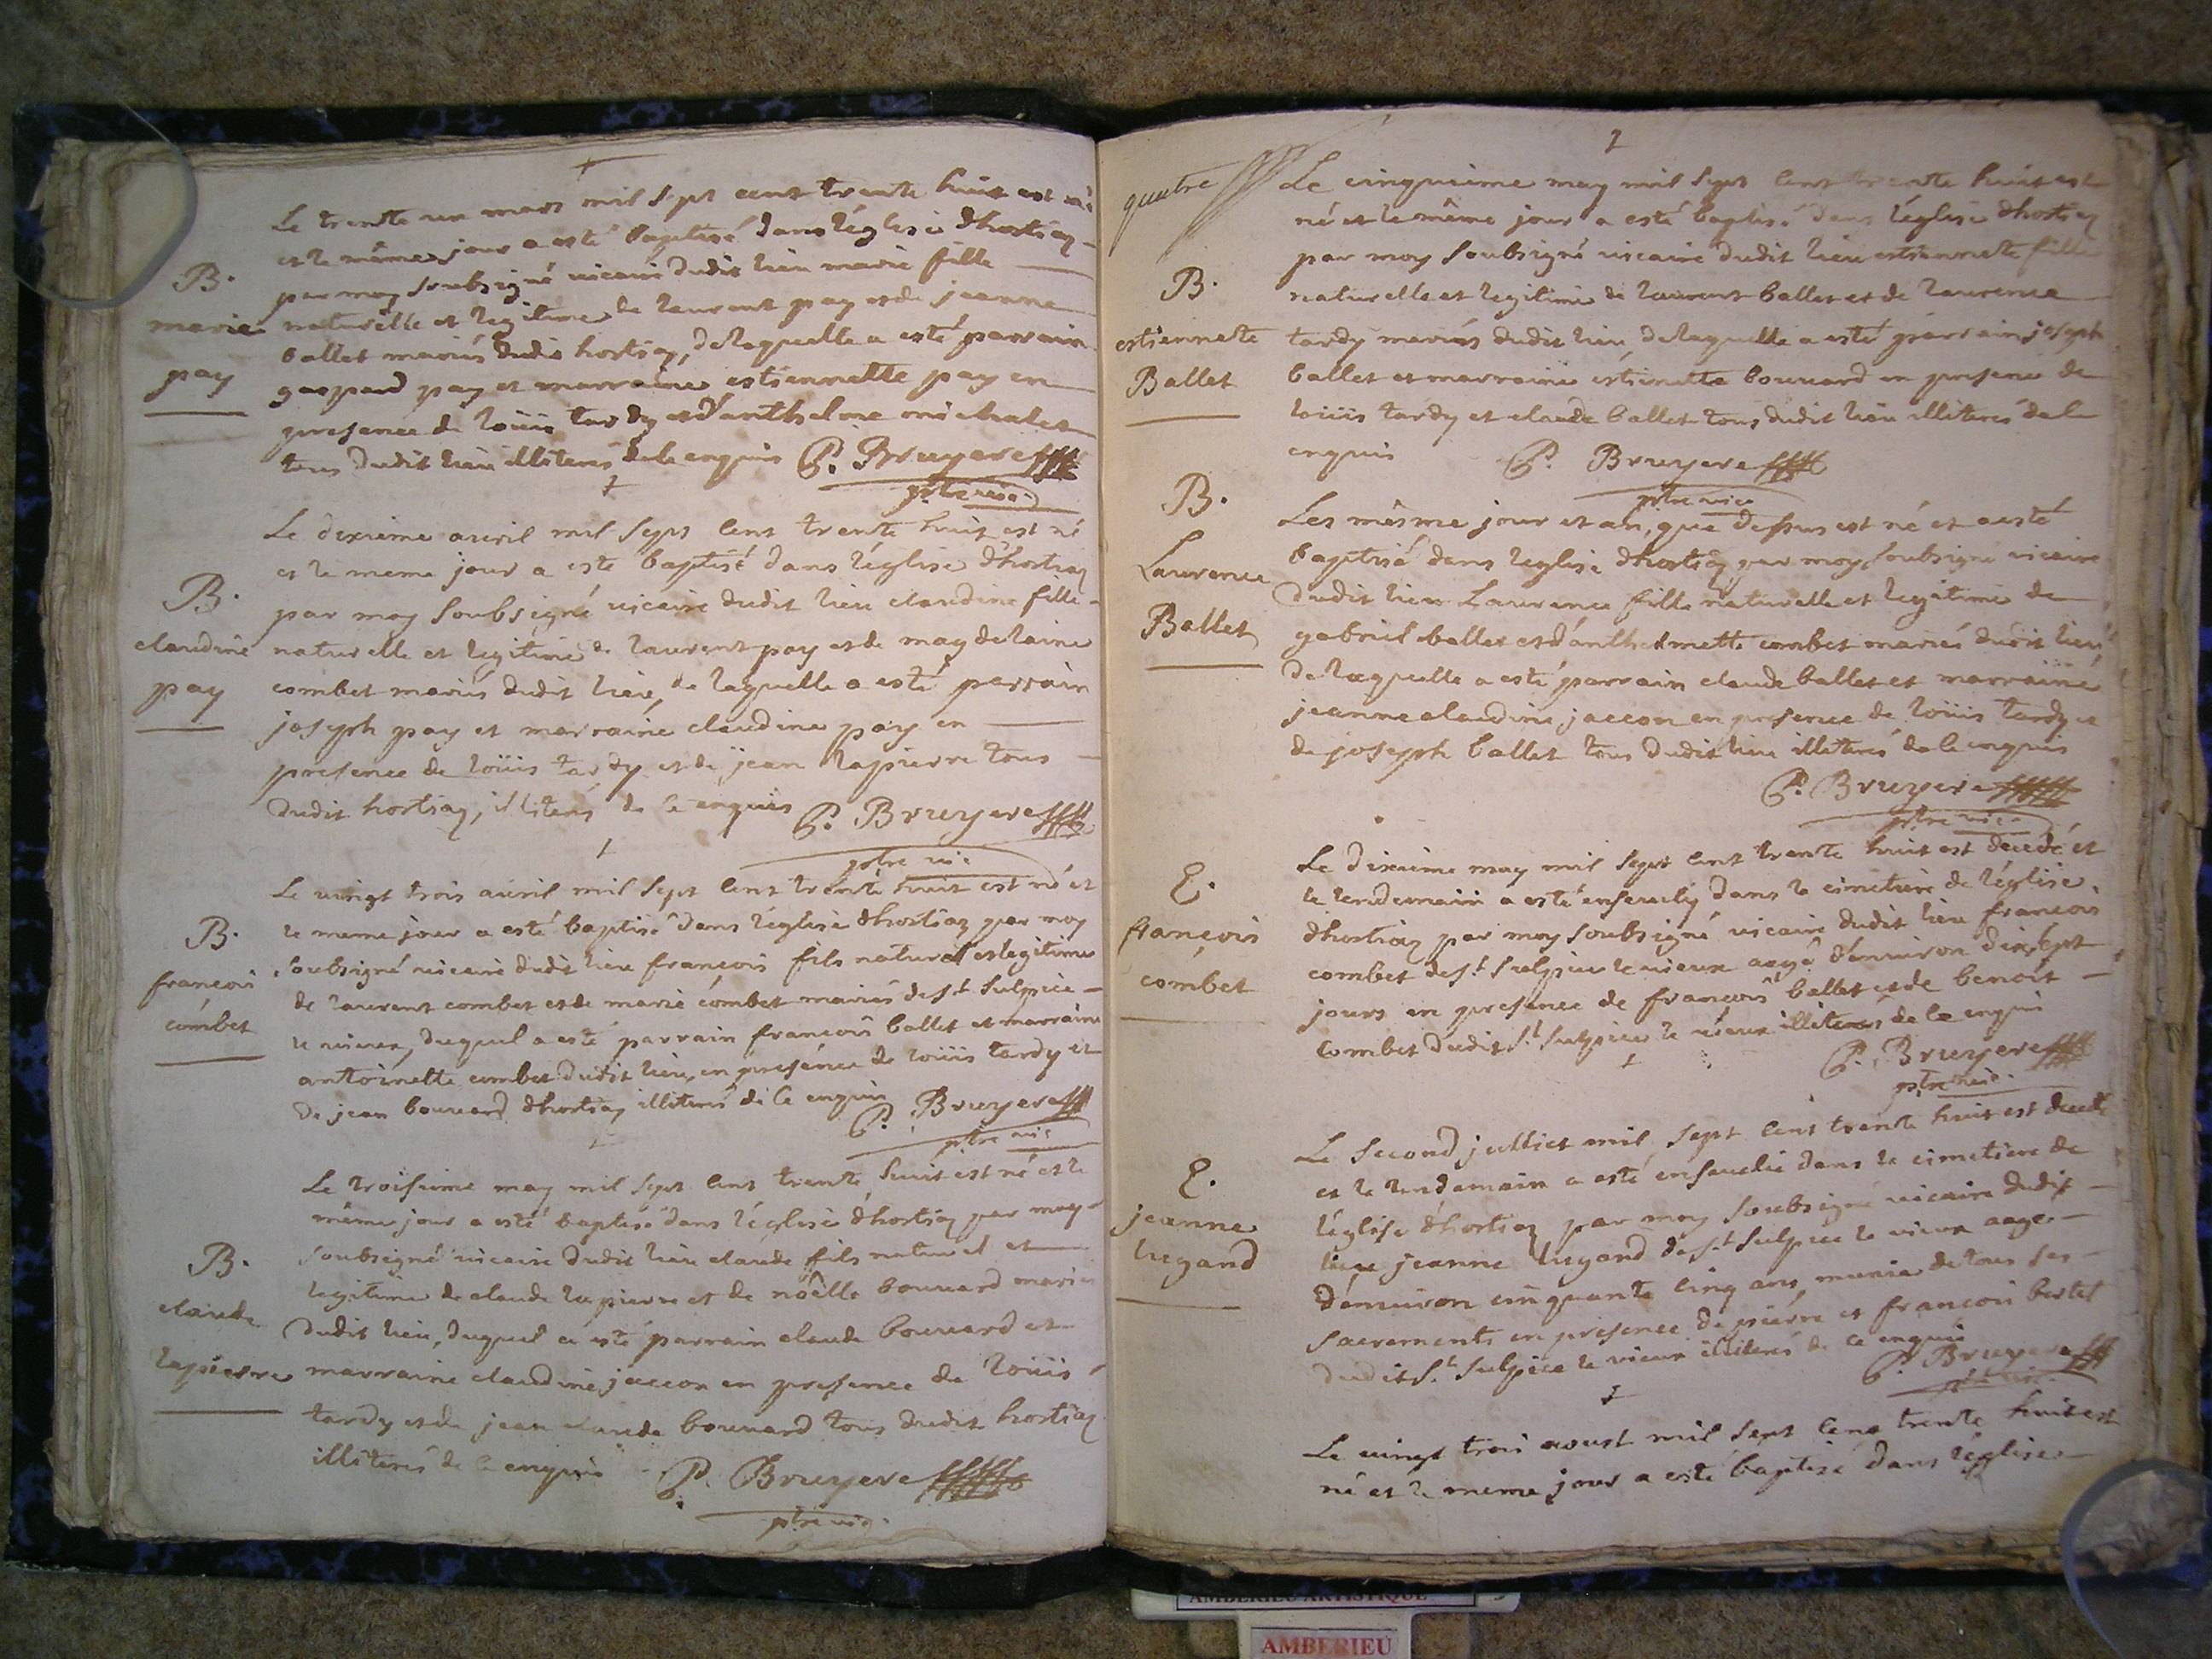 Le trente un mars mil sept cent trente huit est né
et le même jour a esté baptisé dans léglise dhostiaz
B.
par moy soubsigné vicaire dudit lieu marie fille
marie
naturelle et legitime de laurent pay et de jeanne
ballet mariés dudit hostiaz, delaquelle a esté parrain
pay
gaspard pay et marraine estiennette pay en
presence de loüis tardy et d'anthelme michalet
tous dudit lieu illiterés de ce enquis P. Bruyere
ptre vic.
Le dixieme avril mil sept cent trente huit est né
et le meme jour a esté baptisé dans léglise dhostiaz
B.
par moy soubsigné vicaire dudit lieu claudine fille
claudine
naturelle et legitime de laurent pay et de magdelaine
pay
combet mariés dudit lieu, de laquelle a esté parrain
joseph pay et marraine claudine pay en
presence de loüis tardy et de jean lapierre tous
dudit hostiaz, illiterés de ce enquis P. Bruyere
ptre vic
Le vingt trois avril mil sept cent trente huit est né et
B.
le meme jour a esté baptisé dans léglise dhostiaz par moy
françois
soubsigné vicaire dudit lieu françois fils naturel et legitime
de laurent combet et de marie combet mariés de st. sulpice
combet
le vieux, duquel a esté parrain françois ballet et marraine
antoinette combet dudit lieu, en presénce de loüis tardy et
de jean bouvard dhostiaz illiterés de ce enquis P. Bruyere
ptre vic
Le troisieme may mil sept cent trente huit est né et le
même jour a esté baptisé dans léglise dhostiaz par moy
B.
soubsigné vicaire dudit lieu claude fils naturel et
legitime de claude lapierre et de nöelle bouvard mariés
claude
dudit lieu, duquel a esté parrain claude bouvard et
lapierre
marraine claudine jaccon en presence de loüis
tardy et de jean claude bouvard tous dudit hostiaz
illiterés de ce enquis P. Bruyere
ptre vic.
quatre
Le cinquieme may mil sept cent trente huit est
né et le même jour a esté baptisé dans léglise dhostiaz
B.
par moy soubsigné vicaire dudit lieu estiennette fille
naturelle et legitime de laurent ballet et de laurence
estiennette
tardy mariés dudit lieu, delaquelle a esté parrain joseph
Ballet
ballet et marraine estienette bouvard en presence de
loüis tardy et claude ballet tous dudit lieu illiterés de ce
enquis P. Bruyere
ptre vic
B.
Les mésme jour et an, que dessus est né et a esté
Laurence
baptisé dans leglise dhostiaz par moy soubsigné vicaire
dudit lieu Laurence fille naturelle et legitime de
Ballet
gabriel ballet et d'anthelmette combet mariés dudit lieu
de laquelle a esté parrain claude ballet et marraine
jeanne claudine jaccon en presence de loüis tardy et
de joseph ballet tous dudit lieu illiterés de ce enquis
P. Bruyere
ptre vic
Le dixieme may mil sept cent trente huit est decedé et
E.
le lendemain a esté enseuely dans le cimetiere de léglise
françois
dhostiaz par moy soubsigné vicaire dudit lieu francois
combet
combet de st. sulpice le vieux aagé d'environ dix sept
jours en presence de francois ballet et de benoit
combet dudit st. sulpice le vieux illiterés de ce enquis
P. Bruyere
ptre vic.
Le second julliet mil sept cent trente huit est decedé
E.
et le lendemain a esté enseuelie dans le cimetiere de
jeanne
léglise dhostiaz par moy soubsigné vicaire dudit
lugand
lieu jeanne lugand de st. sulpice le vieux aage
d'environ cinquante cinq ans, munie de tous ses
sacrements en presence de pierre et francois bertet
dudit st. sulpice le vieux illiterés de ce enquis
P. Bruyere
Le vingt trois aoust mil sept cent trente huit est
né et le meme jour a esté baptisé dans léglise
AMBERIEU ARTISTIQUE
AMBERIEU